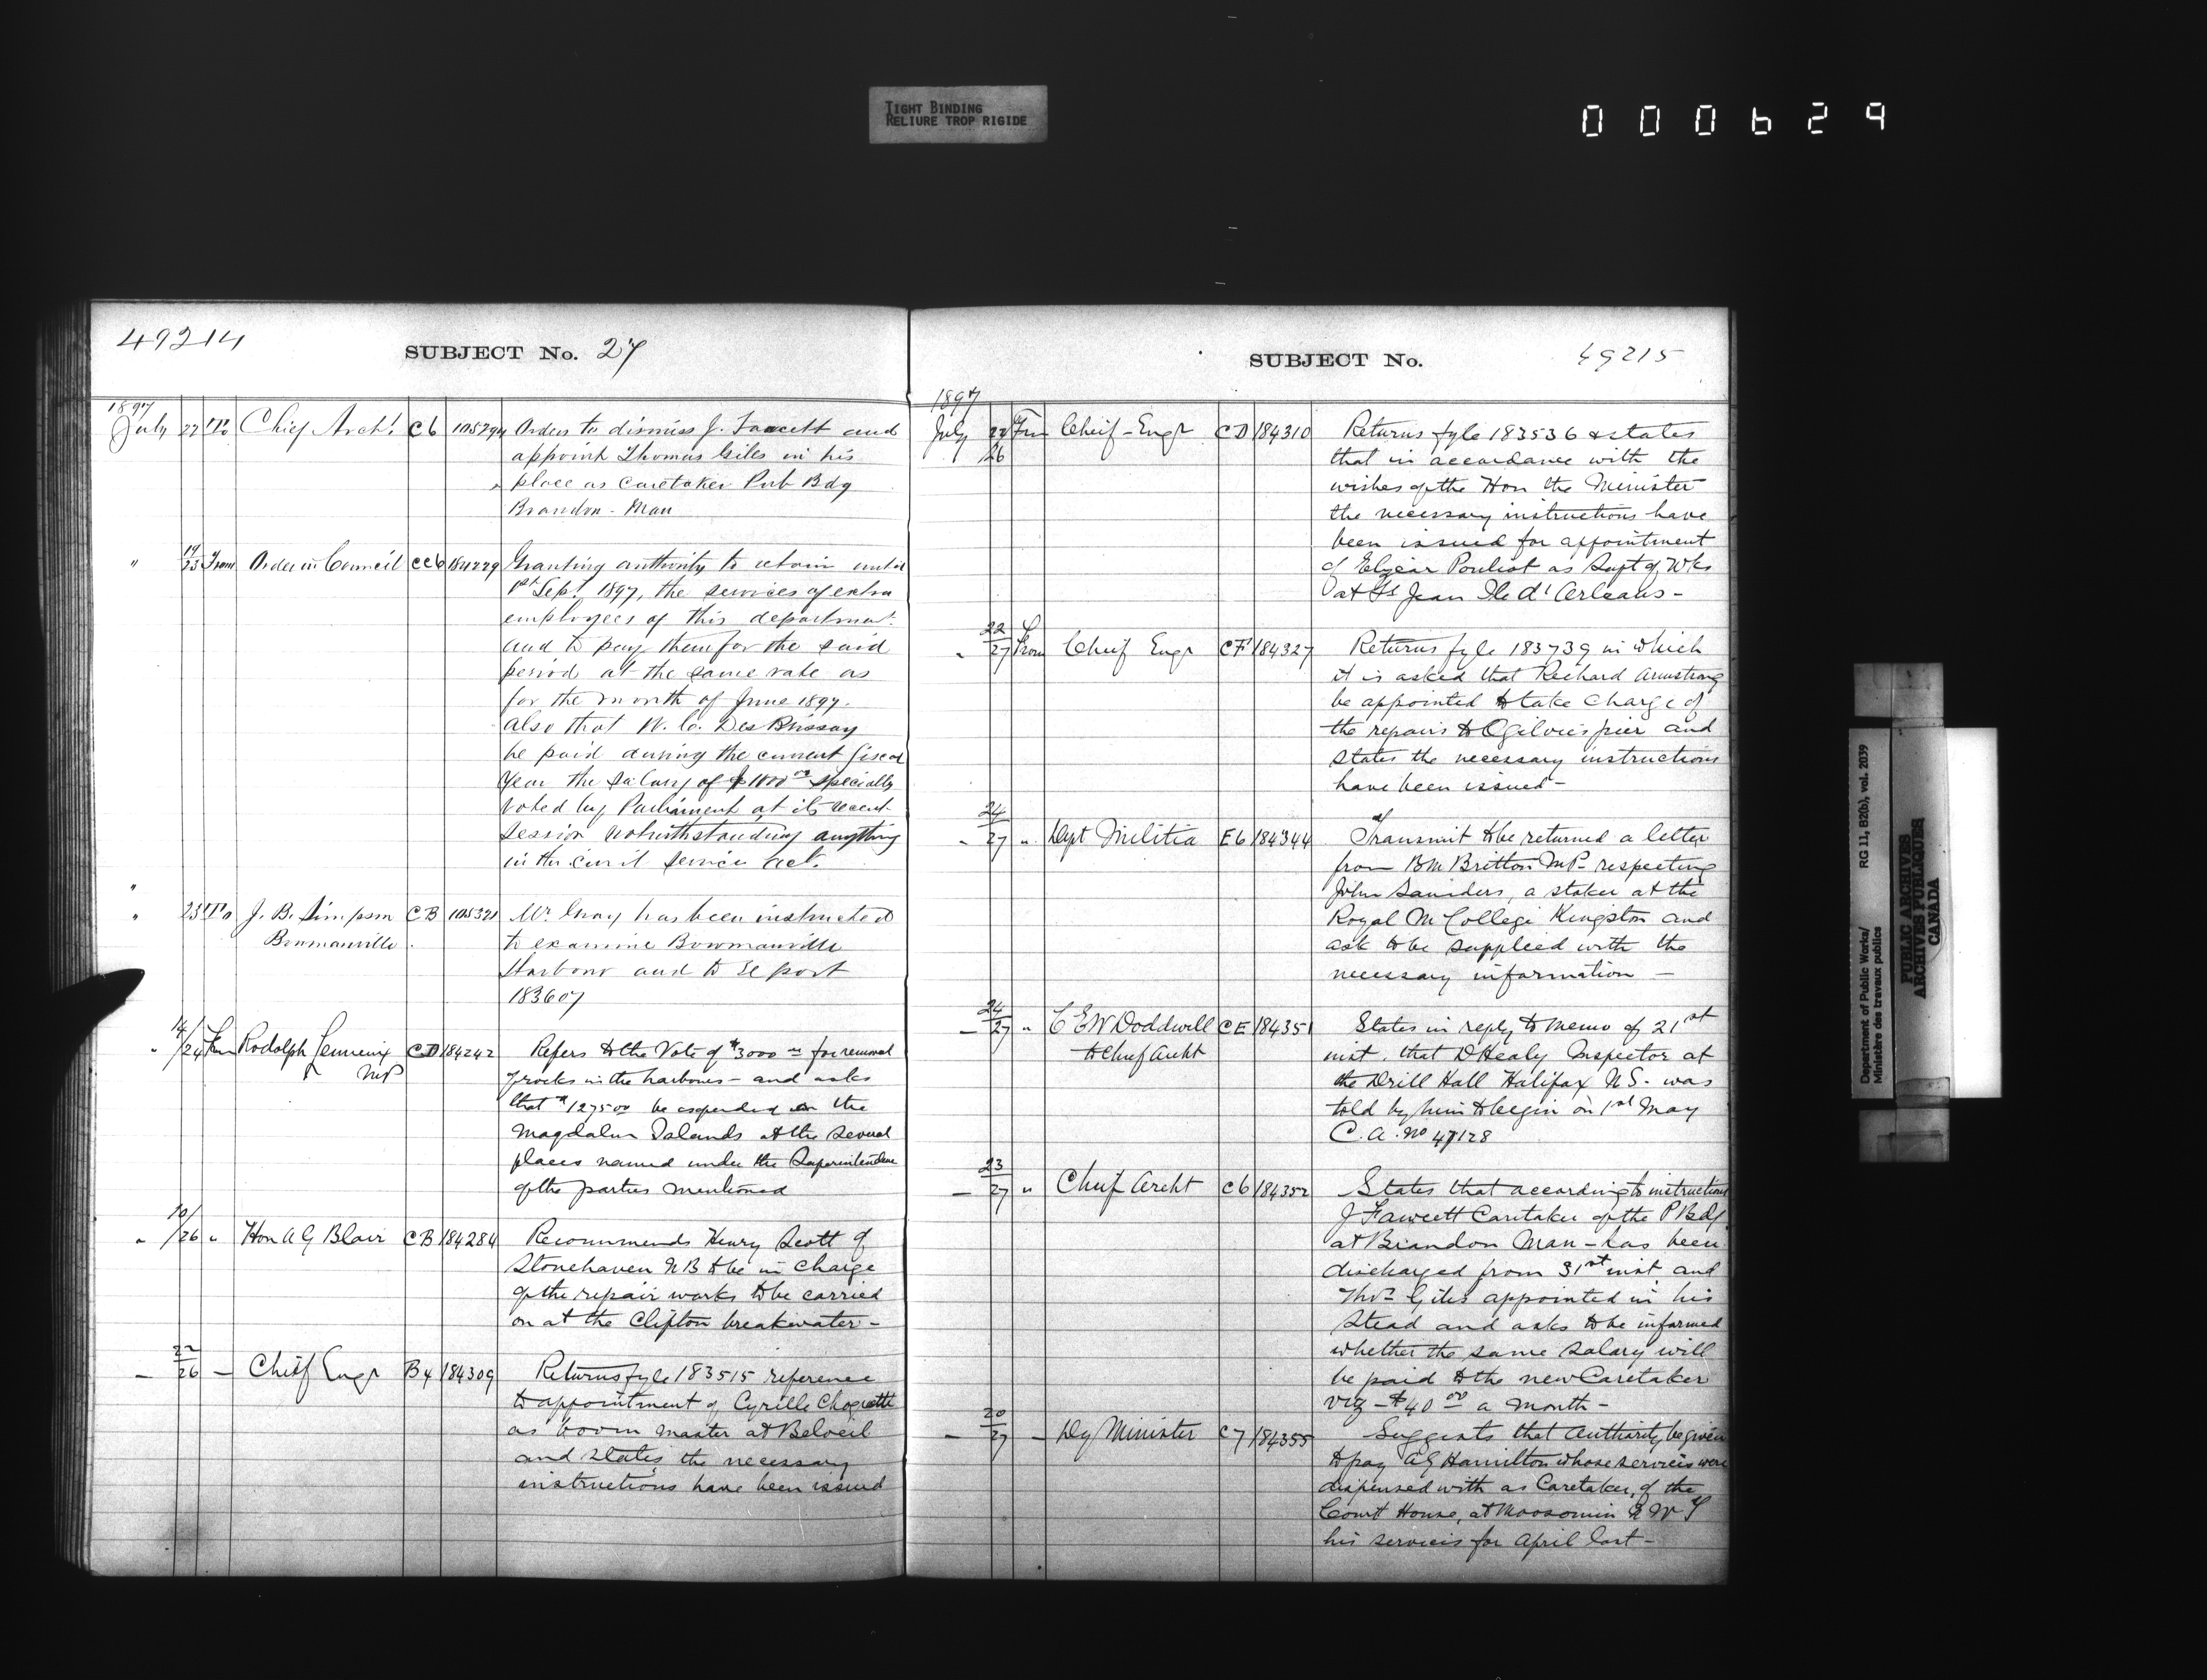 TIGHT BINDING
RELIURE TROP RIGIDE
000629
49214
SUBJECT No. 27
1897
July 22 To Chief Archt. C6 105294 Orders to dismiss J. Fawcett and
appoint Thomas Giles in his
place as Caretaker Pub Bdg
Brandon - Man
" 19/23 From Order in Council CC6 184229 Granting authority to retain until
1st Sept 1897, the services of extra
employees of this department
and to pay them for the said
period at the same rate as
for the month of June 1897.
Also that W. C. DesBrissay
be paid during the current fiscal
Year the salary of $1800 00 specially
voted by Parliament at its recent
session notwithstanding anything
in the civil service act.
"
" 23 To J. B. Simpson CB 105321 Mr. Gray has been instructed
Bowmanville. to examine Bowmanville
Harbour and to report
183607
" 14/24 From Rodolph Lemieux CD 184242 Refers to the Vote of $3000 00 for removal
MP of rocks in the harbours - and asks
that $1275 00 be expended on the
Magdalen Islands at the several
places named under the Superintendence
of the parties mentioned
" 10/26 " Hon A G Blair CB 184284 Recommends Henry Scott of
Stonehaven NB to be in charge
of the repair works to be carried
on at the Clifton breakwater -
— 22/26 — Chief Engr B4 184309 Returns fyle 183515 reference
to appointment of Cyrille Choquette
as boom master at Beloeil
and states the necessary
instructions have been issued
SUBJECT No.
49215
1897
July 22/26 Frm Cheif - Engr CD 184310 Returns fyle 183536 & states
that in accordance with the
wishes of the Hon the Minister
the necessary instructions have
been issued for appointment
of Elzear Pouliot as Supt of Wks
at St Jean Ile d'Orleans -
" 22/27 From Chief Engr CF 184327 Returns fyle 183739 in which
it is asked that Richard Armstrong
be appointed to take charge of
the repairs to Ogilvies pier and
states the necessary instructions
have been issued -
" 24/27 " Dept Militia E6 184344 Transmit to be returned a letter
from BM Britton MP - respecting
John Saunders, a stoker at the
Royal M College Kingston and
ask to be supplied with the
necessary information -
— 24/27 " C E W Doddwell CE 184351 States in reply to memo of 21st
to Chief Archt inst. that D Healy Inspector at
the Drill Hall Halifax N S - was
told by him to begin on 1st May
C. A. No 47128
— 23/27 " Chief Archt C6 184352 States that according to instructions
J Fawcett Caretaker of the P Bdg
at Brandon Man - has been
discharged from 31st inst and
Thos Giles appointed in his
stead and asks to be informed
whether the same salary will
be paid to the new Caretaker
viz - $40 00 a month -
— 20/27 — Dy Minister C7 184355 Suggests that authority be given
to pay A G Hamilton whose services were
dispensed with as Caretaker, of the
Court House, at Moosomin N W T
his services for April last -
Department of Public Works/ RG 11, B2(b), vol. 2039
Ministère des travaux publics
PUBLIC ARCHIVES
ARCHIVES PUBLIQUES
CANADA